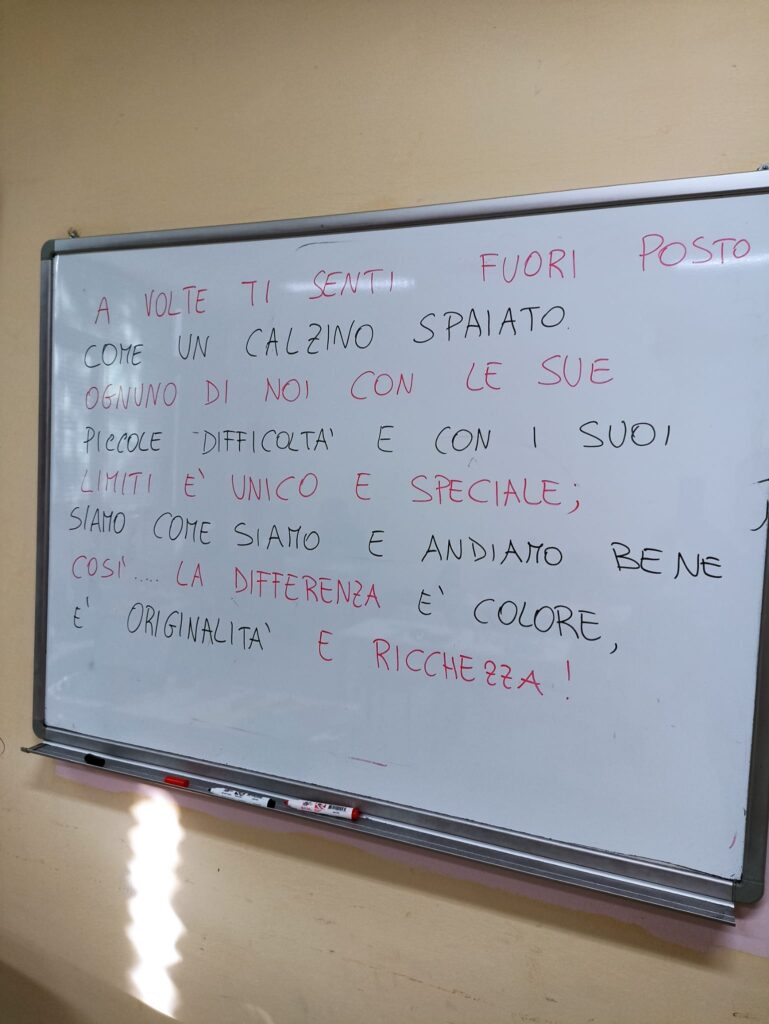 A VOLTE TI SENTI FUORI POSTO
COME UN CALZINO SPAIATO.
OGNUNO DI NOI CON LE SUE
PICCOLE DIFFICOLTA' E CON I SUOI
LIMITI E' UNICO E SPECIALE;
SIAMO COME SIAMO E ANDIAMO BENE
COSI'.... LA DIFFERENZA E' COLORE,
E' ORIGINALITA' E RICCHEZZA!